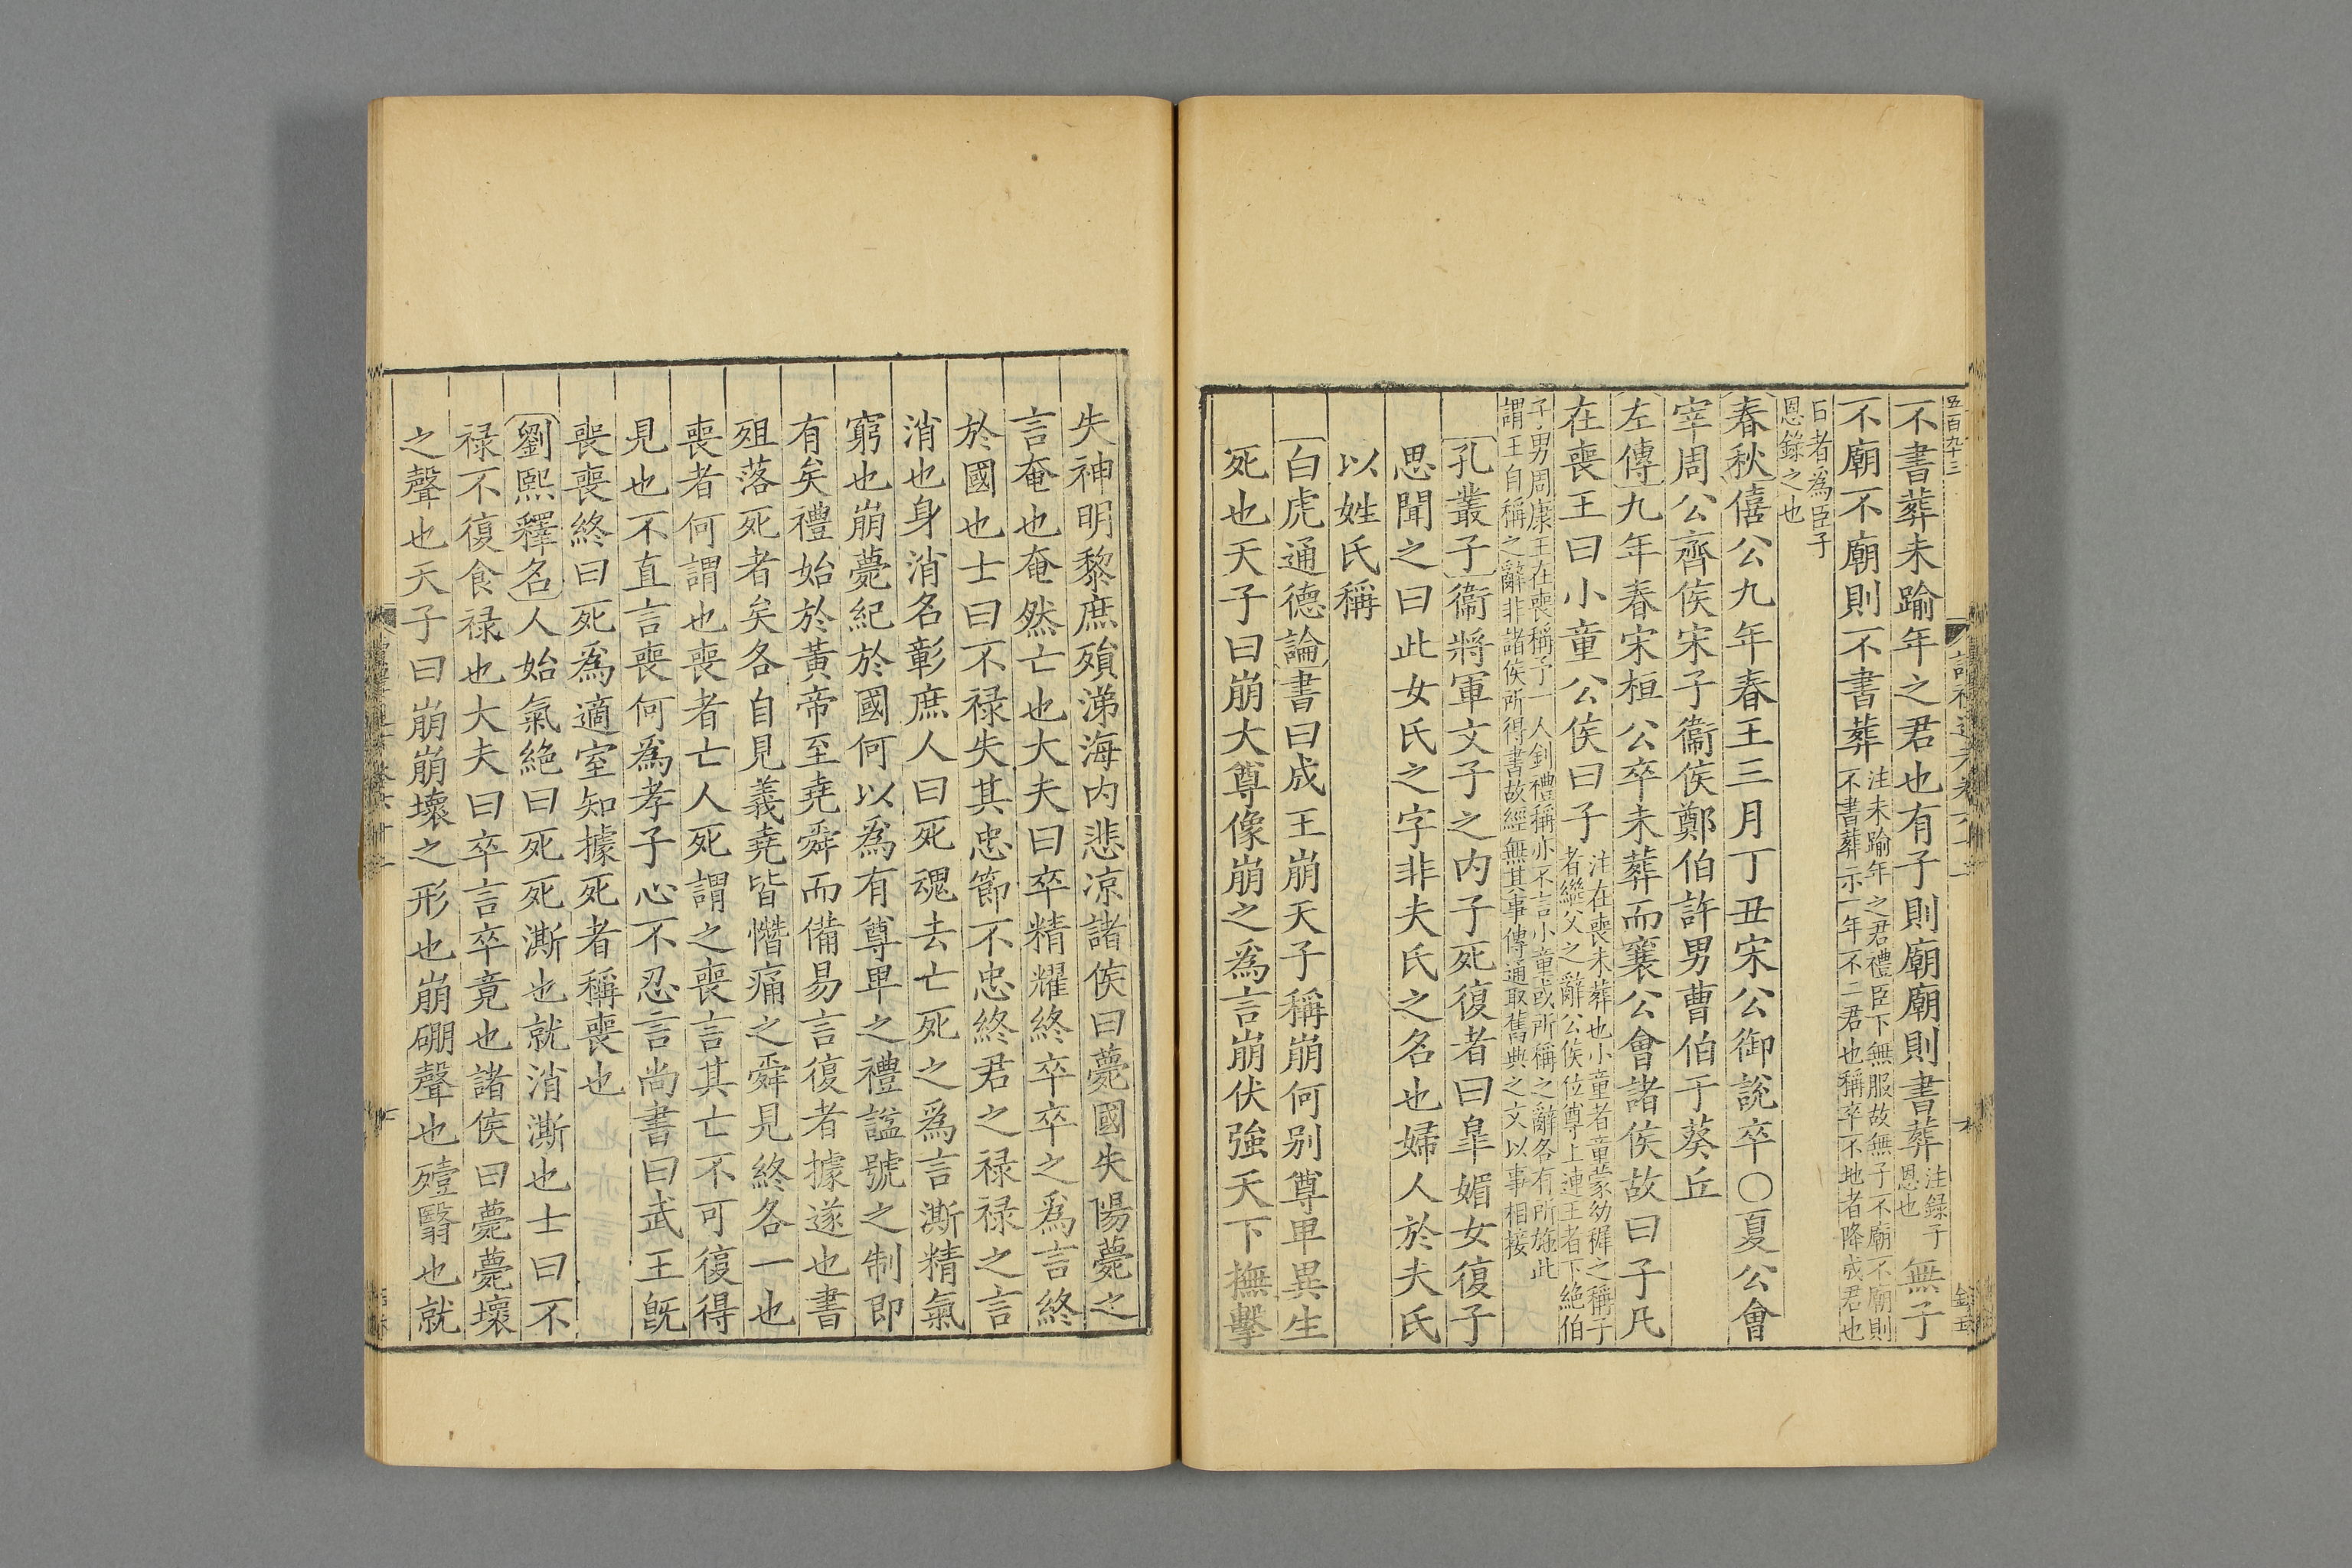 五百九十三
不書葬未踰年之君也有子則廟廟則書葬注録子恩也無子
不廟不廟則不書葬注未踰年之君禮臣下無服故無子不廟不廟則不書葬示一年不二君也稱卒不地者降成君也
日者爲臣子恩錄之也
春秋僖公九年春王三月丁丑宋公御說卒○夏公會
宰周公齊侯宋子衞侯鄭伯許男曹伯于葵丘
左傳九年春宋桓公卒未葬而襄公會諸侯故曰子凡
在喪王曰小童公侯曰子注在喪未葬也小童者童蒙幼稺之稱子者繼父之辭公侯位尊上連王者下絶伯
子男周康王在喪稱予一人釗禮稱亦不言小童或所稱之辭各有所施此謂王自稱之辭非諸侯所得書故經無其事傳通取舊典之文以事相接
孔叢子衞將軍文子之内子死復者曰臯媚女復子
思聞之曰此女氏之字非夫氏之名也婦人於夫氏
以姓氏稱
白虎通德論書曰成王崩天子稱崩何别尊卑異生
死也天子曰崩大尊像崩之爲言崩伏強天下撫擊
失神明黎庶殞涕海内悲凉諸侯曰薨國失陽薨之
言奄也奄然亡也大夫曰卒精耀終卒卒之爲言終
於國也士曰不禄失其忠節不忠終君之禄禄之言
消也身消名彰庶人曰死魂去亡死之爲言澌精氣
窮也崩薨紀於國何以爲有尊卑之禮諡號之制即
有矣禮始於黃帝至堯舜而備易言復者據遂也書
殂落死者矣各自見義堯皆憯痛之舜見終各一也
喪者何謂也喪者亡人死謂之喪言其亡不可復得
見也不直言喪何爲孝子心不忍言尚書曰武王旣
喪喪終曰死爲適室知據死者稱喪也
劉熙釋名人始氣絶曰死死澌也就消澌也士曰不
禄不復食禄也大夫曰卒言卒竟也諸侯曰薨薨壞
之聲也天子曰崩崩壞之形也崩硼聲也殪翳也就